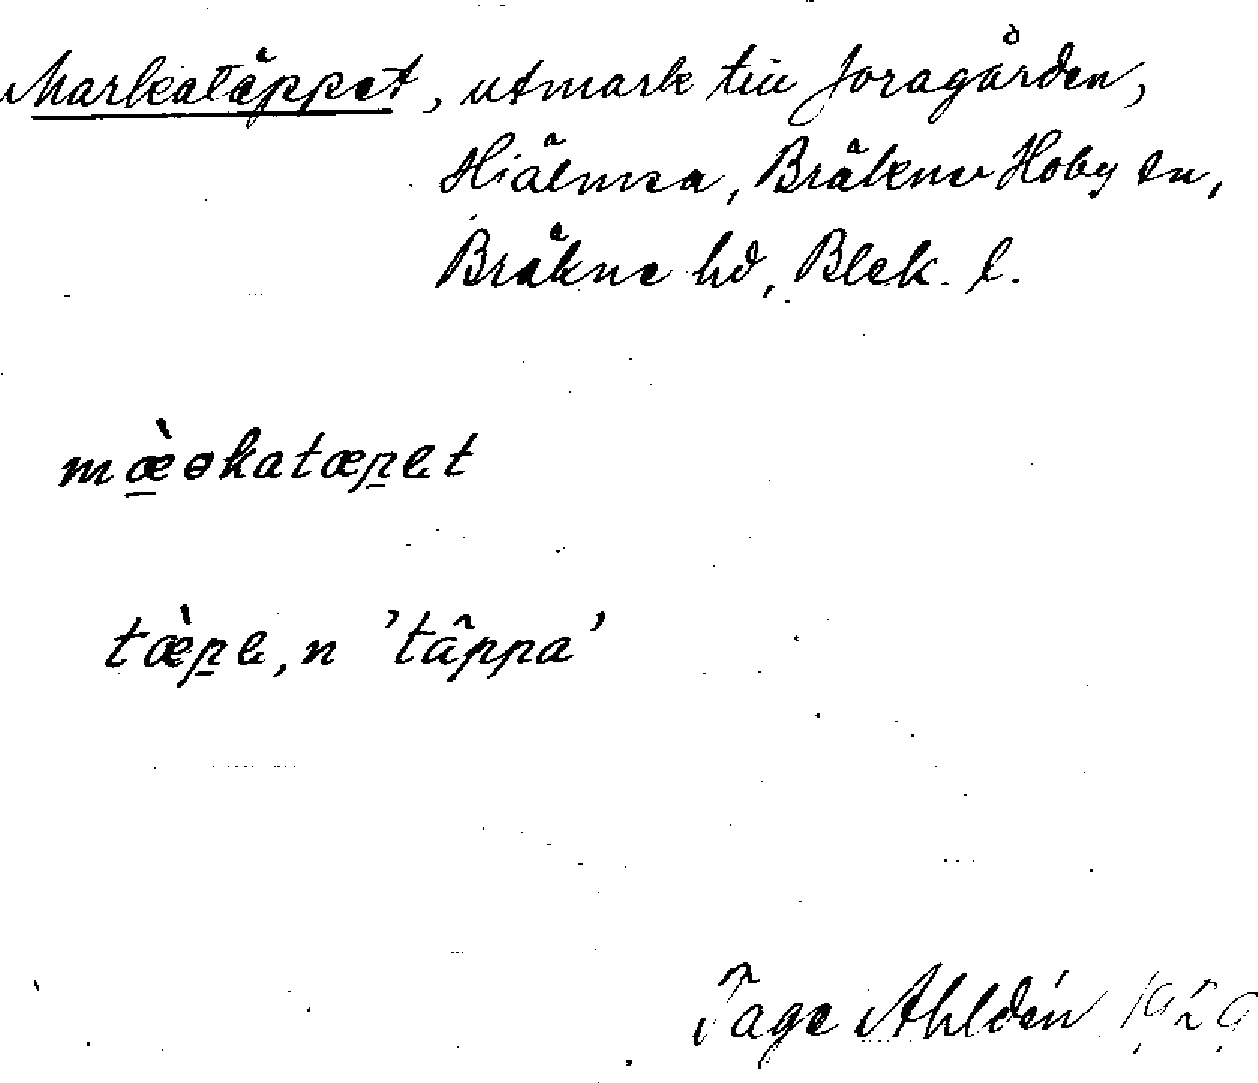 Markatäppet, utmark till Joragården,
Hjälmsa, Bräkne Hoby sn,
Bräkne hd, Blek. l.
mæ̠̀ɵkatæp̠et
tæ̀p̠e, n 'täppa'
Tage Ahldén 1929